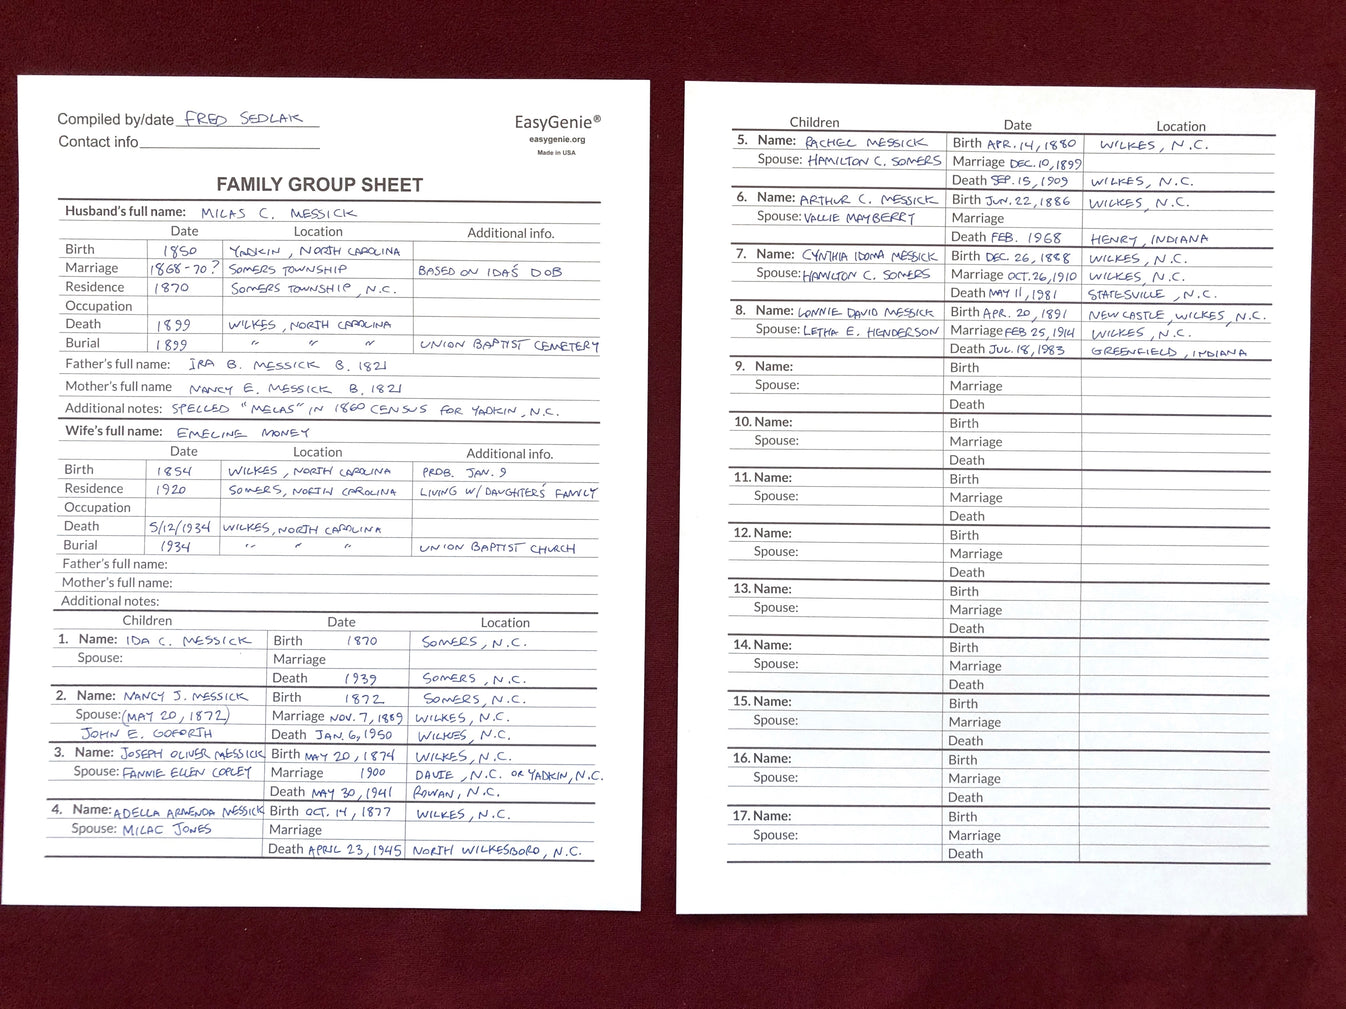 Compiled by/date FRED SEDLAK
Contact info
EasyGenie®
easygenie.org
Made in USA
FAMILY GROUP SHEET
Husband's full name: MILAS C. MESSICK
Date Location Additional info.
Birth 1850 YADKIN, NORTH CAROLINA
Marriage 1868-70? SOMERS TOWNSHIP BASED ON IDA'S DOB
Residence 1870 SOMERS TOWNSHIP, N.C.
Occupation
Death 1899 WILKES, NORTH CAROLINA
Burial 1899 " " " UNION BAPTIST CEMETERY
Father's full name: IRA B. MESSICK B. 1821
Mother's full name NANCY E. MESSICK B. 1821
Additional notes: SPELLED "MELAS" IN 1860 CENSUS FOR YADKIN, N.C.
Wife's full name: EMELINE MONEY
Date Location Additional info.
Birth 1854 WILKES, NORTH CAROLINA PROB. JAN. 9
Residence 1920 SOMERS, NORTH CAROLINA LIVING W/ DAUGHTER'S FAMILY
Occupation
Death 5/12/1934 WILKES, NORTH CAROLINA
Burial 1934 " " " UNION BAPTIST CHURCH
Father's full name:
Mother's full name:
Additional notes:
Children Date Location
1. Name: IDA C. MESSICK Birth 1870 SOMERS, N.C.
Spouse: Marriage
Death 1939 SOMERS, N.C.
2. Name: NANCY J. MESSICK Birth 1872 SOMERS, N.C.
Spouse: (MAY 20, 1872) Marriage NOV. 7, 1889 WILKES, N.C.
JOHN E. GOFORTH Death JAN. 6, 1950 WILKES, N.C.
3. Name: JOSEPH OLIVER MESSICK Birth MAY 20, 1874 WILKES, N.C.
Spouse: FANNIE ELLEN COPLEY Marriage 1900 DAVIE, N.C. OR YADKIN, N.C.
Death MAY 30, 1941 ROWAN, N.C.
4. Name: ADELLA ARMENDA MESSICK Birth OCT. 14, 1877 WILKES, N.C.
Spouse: MILAC JONES Marriage
Death APRIL 23, 1945 NORTH WILKESBORO, N.C.
Children Date Location
5. Name: RACHEL MESSICK Birth APR. 14, 1880 WILKES, N.C.
Spouse: HAMILTON C. SOMERS Marriage DEC. 10, 1899
Death SEP. 15, 1909 WILKES, N.C.
6. Name: ARTHUR C. MESSICK Birth JUN. 22, 1886 WILKES, N.C.
Spouse: VALLIE MAYBERRY Marriage
Death FEB. 1968 HENRY, INDIANA
7. Name: CYNTHIA IDOMA MESSICK Birth DEC. 26, 1888 WILKES, N.C.
Spouse: HAMILTON C. SOMERS Marriage OCT. 26, 1910 WILKES, N.C.
Death MAY 11, 1981 STATESVILLE, N.C.
8. Name: LONNIE DAVID MESSICK Birth APR. 20, 1891 NEW CASTLE, WILKES, N.C.
Spouse: LETHA E. HENDERSON Marriage FEB 25, 1914 WILKES, N.C.
Death JUL. 18, 1983 GREENFIELD, INDIANA
9. Name: Birth
Spouse: Marriage
Death
10. Name: Birth
Spouse: Marriage
Death
11. Name: Birth
Spouse: Marriage
Death
12. Name: Birth
Spouse: Marriage
Death
13. Name: Birth
Spouse: Marriage
Death
14. Name: Birth
Spouse: Marriage
Death
15. Name: Birth
Spouse: Marriage
Death
16. Name: Birth
Spouse: Marriage
Death
17. Name: Birth
Spouse: Marriage
Death